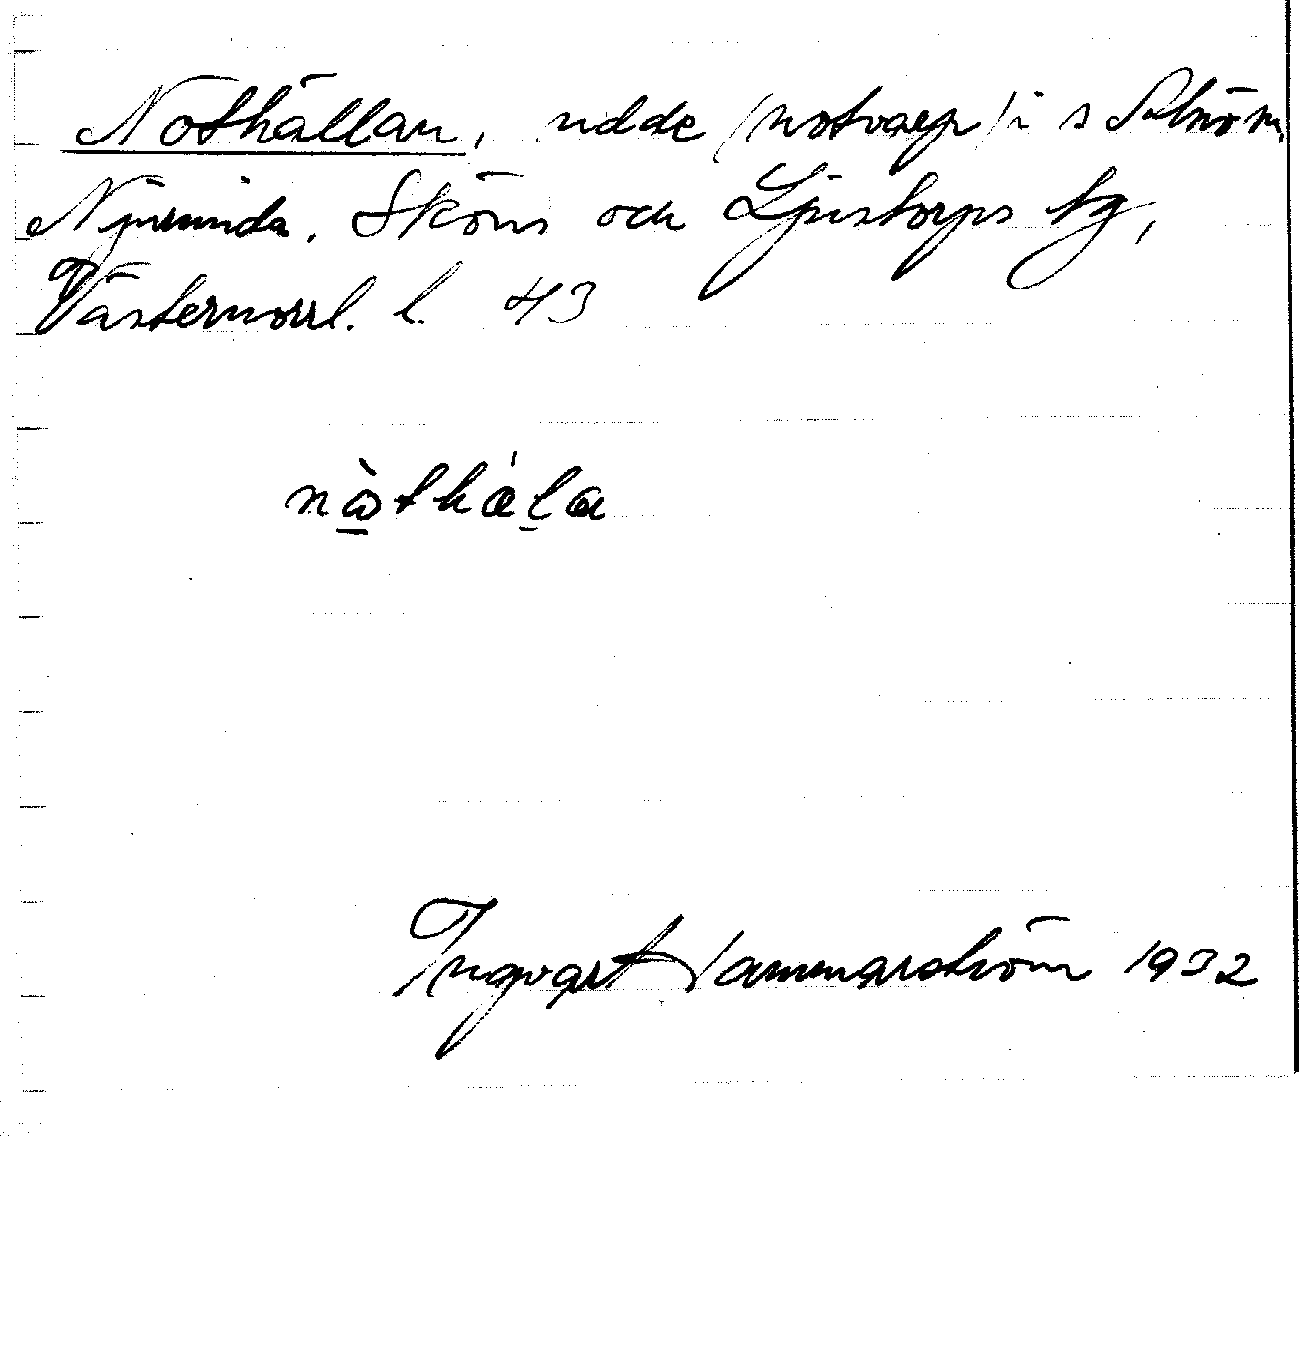 Nothällan, udde (notvarp) i s Alnön,
Njurunda, Sköns och Ljustorps tg,
Västernorrl. l. 43
Ingvart Hammarström 1932